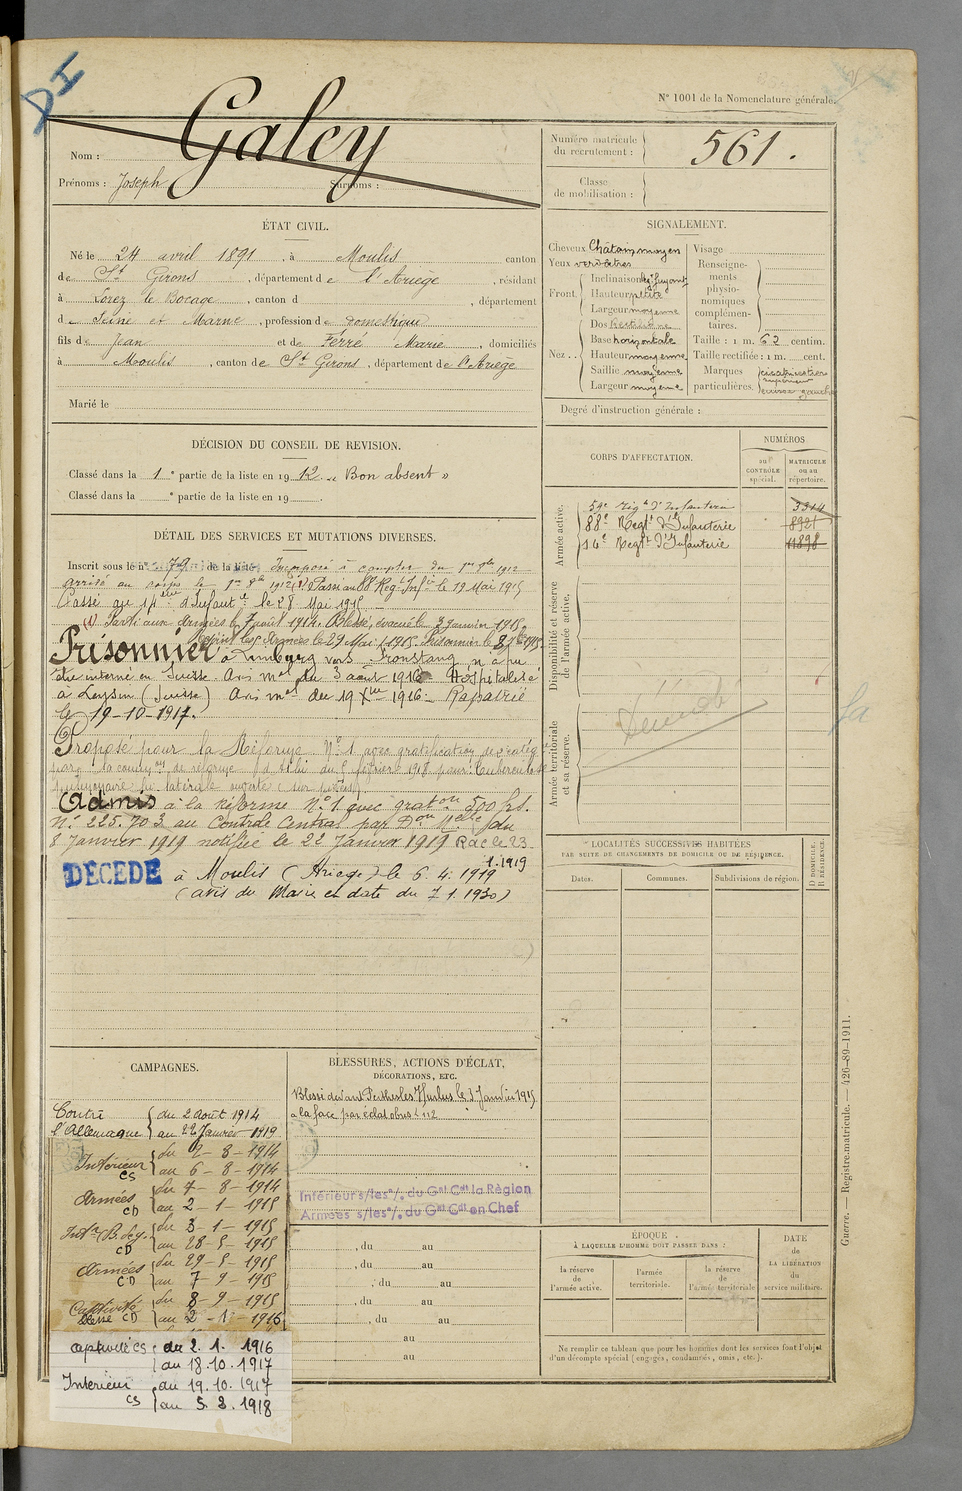 DI
N° 1001 de la Nomenclature générale.
Nom : Galey
Prénoms : Joseph Surnoms :
Numéro matricule du recrutement : 561.
Classe de mobilisation :
ÉTAT CIVIL.
Né le 24 avril 1891, à Moulis canton
de St Girons, département de l'Ariège, résidant
à Lorez le Bocage, canton d , département
d e Seine et Marne, profession de domestique
fils de Jean et de Ferré Marie, domiciliés
à Moulis, canton de St Girons, département de l'Ariège
Marié le
SIGNALEMENT.
Cheveux Châtain moyen
Yeux verdâtres
Front. Inclinaison fuyant
Hauteur petite
Largeur moyenne
Nez... Dos Rectiligne
Base horizontale
Hauteur moyenne
Saillie moyenne
Largeur moyenne
Visage
Renseignements physionomiques complémentaires.
Taille : 1 m. 62 centim.
Taille rectifiée : 1 m. cent.
Marques particulières.
Degré d'instruction générale :
DÉCISION DU CONSEIL DE REVISION.
Classé dans la 1e partie de la liste en 1912 « Bon absent »
Classé dans la e partie de la liste en 19
CORPS D'AFFECTATION.
NUMÉROS
au CONTRÔLE spécial.
MATRICULE ou au répertoire.
Armée active.
59e Régt d'Infanterie 3314
88e Regt d'Infanterie 8921
14e Regt d'Infanterie 11898
Disponibilité et réserve de l'armée active.
Armée territoriale et sa réserve.
DÉTAIL DES SERVICES ET MUTATIONS DIVERSES.
Inscrit sous le n° 79 de la liste Incorporé à compter du 1er 8bre 1912
arrivé au corps le 1er 8bre 1912 (1) Passé au 88e Reg. Inf ie le 19 Mai 1915
Passé au 14ème d'Infant ie le 28 Mai 1915
(1) Parti aux armées le 7 août 1914. Blessé, évacué le 3 janvier 1915
Rejoint les Armées le 29 Mai 1915. Prisonnier le 8 7bre 1915.
Prisonnier à Limburg vers
être interné en Suisse. Avis mel du 3 août 1916 Hospitalisé
à Leysin (Suisse) Avis mel du 19 Xbre 1916 - Rapatrié
le 19-10-1917.
Proposé pour la Réforme N° 1 avec gratification
par la com on de réforme du 5 février 1918 pour : tuberculose
pulmonaire
Admis à la réforme N° 1 avec grat on 500 frs.
N° 225.703 au Contrôle Central par D on M elle du
8 Janvier 1919 notifiée le 22 Janvier 1919 R.d.c le 23.
1.1919
DÉCÉDÉ à Moulis (Ariège) le 6.4.1919
(avis du Maire en date du 7.1.1930)
Décédé
LOCALITÉS SUCCESSIVES HABITÉES
PAR SUITE DE CHANGEMENTS DE DOMICILE OU DE RÉSIDENCE.
Dates.
Communes.
Subdivisions de région.
D DOMICILE.
R RÉSIDENCE.
CAMPAGNES.
Contre l'Allemagne du 2 août 1914
au 22 Janvier 1919
Intérieur CS du 2-8-1914
au 6-8-1914
Armées CD du 7-8-1914
au 2-1-1915
Intr (B. de g.) CD du 3-1-1915
au 28-5-1915
Armées CD du 29-5-1915
au 7-9-1915
Captivité blessé CD du 8-9-1915
au 2-1-1916
captivité CS du 2.1.1916
au 18.10.1917
Intérieur CS du 19.10.1917
au 5.2.1918
BLESSURES, ACTIONS D'ÉCLAT,
DÉCORATIONS, ETC.
Blessé devant Perthes les Hurlus le 3 Janvier 1915
à la face par éclat obus
Intérieur s/les o/. du Gal Cdt la Région
Armées s/les o/. du Gal Cdt en Chef
, du au
, du au
, du au
, du au
, du au
au
au
ÉPOQUE
À LAQUELLE L'HOMME DOIT PASSER DANS :
la réserve de l'armée active.
l'armée territoriale.
la réserve de l'armée territoriale
DATE de LA LIBÉRATION du service militaire.
Ne remplir ce tableau que pour les hommes dont les services font l'objet
d'un décompte spécial (engagés, condamnés, omis, etc.).
Guerre. — Registre matricule. — 426-89-1911.